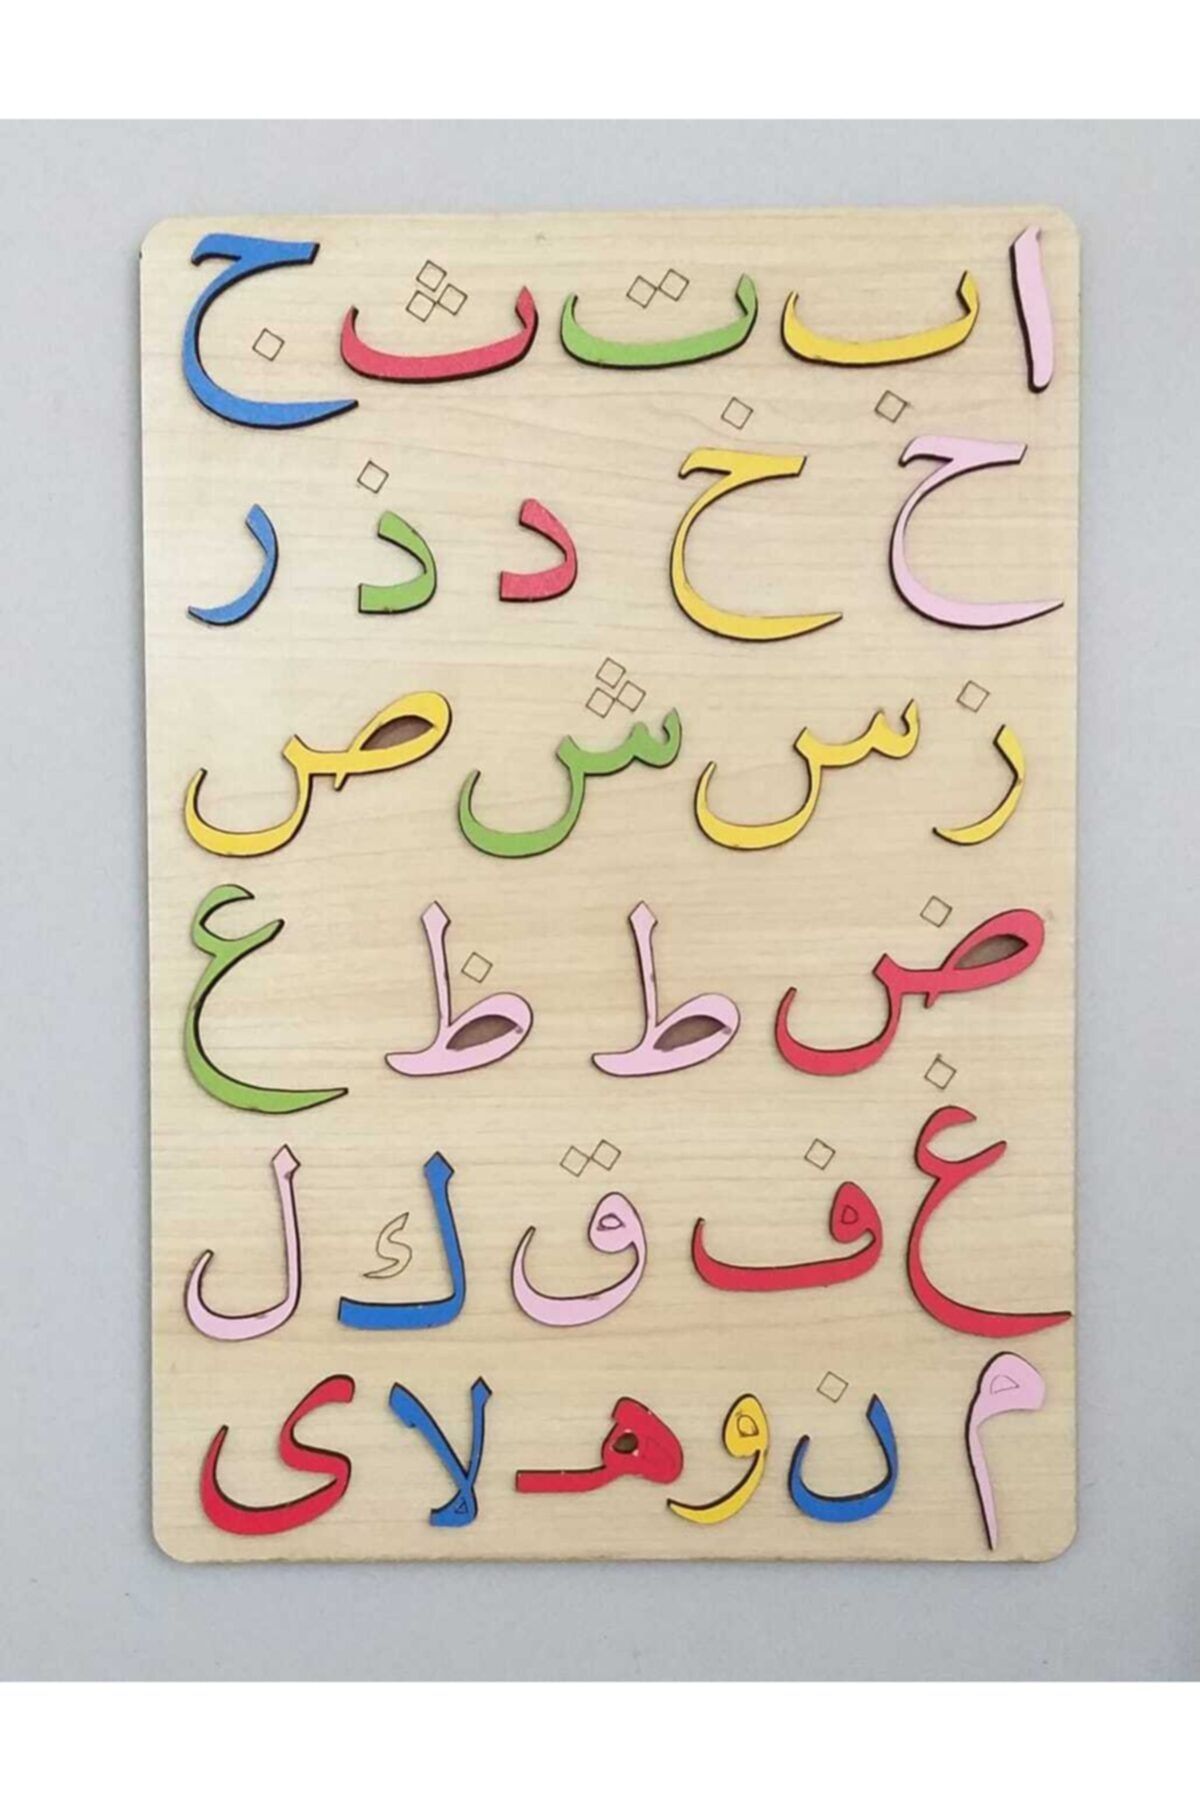 ا ب ت ث ج
ح خ د ذ ر
ز س ش ص
ض ط ظ ع
غ ف ق ك ل
م ن و هـ لا ى